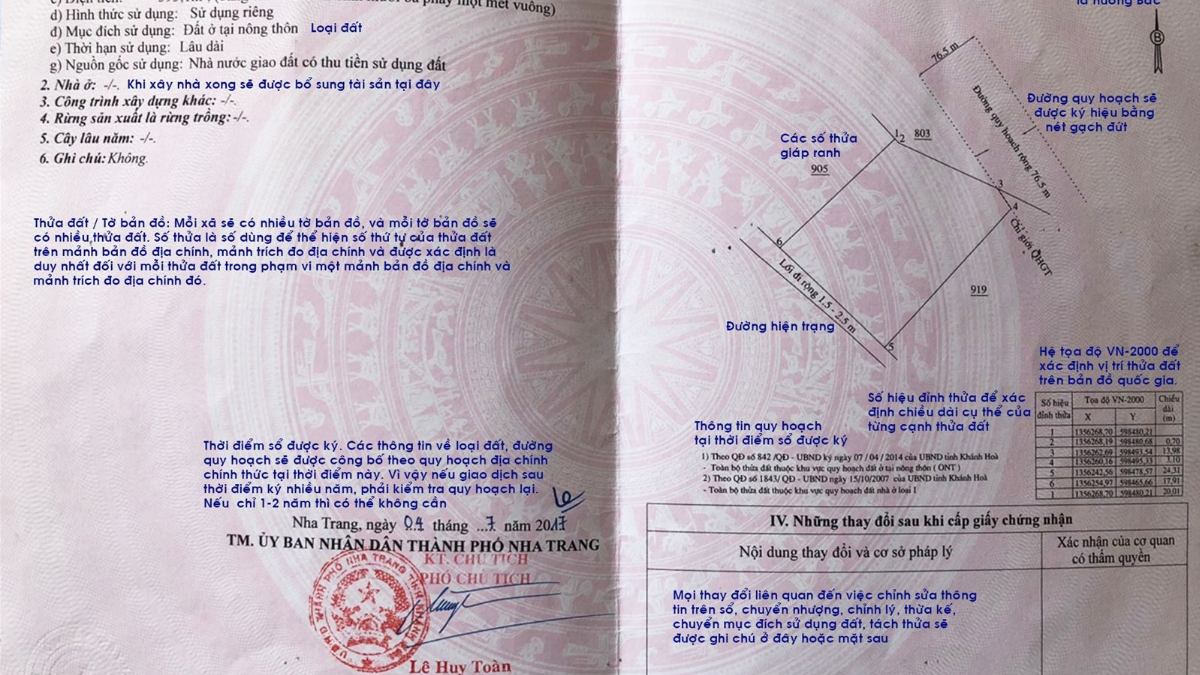 d) Hình thức sử dụng: Sử dụng riêng
đ) Mục đích sử dụng: Đất ở tại nông thôn Loại đất
e) Thời hạn sử dụng: Lâu dài
g) Nguồn gốc sử dụng: Nhà nước giao đất có thu tiền sử dụng đất
2. Nhà ở: -/-. Khi xây nhà xong sẽ được bổ sung tài sản tại đây
3. Công trình xây dựng khác: -/-.
4. Rừng sản xuất là rừng trồng: -/-.
5. Cây lâu năm: -/-.
6. Ghi chú: Không.
Thửa đất / Tờ bản đồ: Mỗi xã sẽ có nhiều tờ bản đồ, và mỗi tờ bản đồ sẽ
có nhiều thửa đất. Số thửa là số dùng để thể hiện số thứ tự của thửa đất
trên mảnh bản đồ địa chính, mảnh trích đo địa chính và được xác định là
duy nhất đối với mỗi thửa đất trong phạm vi một mảnh bản đồ địa chính và
mảnh trích đo địa chính đó.
Thời điểm sổ được ký. Các thông tin về loại đất, đường
quy hoạch sẽ được công bố theo quy hoạch địa chính
chính thức tại thời điểm này. Vì vậy nếu giao dịch sau
thời điểm ký nhiều năm, phải kiểm tra quy hoạch lại.
Nếu chỉ 1-2 năm thì có thể không cần
Nha Trang, ngày 04 tháng ..7 năm 2017
TM. ỦY BAN NHÂN DÂN THÀNH PHỐ NHA TRANG
KT. CHỦ TỊCH
PHÓ CHỦ TỊCH
Lê Huy Toàn
là hướng Bắc
B
76.5 m
Đường quy hoạch rộng 76.5 m
Đường quy hoạch sẽ
được ký hiệu bằng
nét gạch đứt
Các số thửa
giáp ranh
905
1
2
803
3
4
Chỉ giới QHGT
6
Lối đi rộng 1.5 - 2.5 m
919
Đường hiện trạng
5
Hệ tọa độ VN-2000 để
xác định vị trí thửa đất
trên bản đồ quốc gia.
Số hiệu đỉnh thửa để xác
định chiều dài cụ thể của
từng cạnh thửa đất
Số hiệu đỉnh thửa Tọa độ VN-2000 Chiều dài (m)
X Y
1 1356268,70 598480,21
0,70
2 1356268,19 598480,68
13,98
3 1356262,69 598493,54
4 1356260,18
24,31
5
17,91
6 1356254,97 598465,66
20,01
1 1356268,70 598480,21
Thông tin quy hoạch
tại thời điểm sổ được ký
1) Theo QĐ số 842 /QĐ - UBND ký ngày 07 / 04 / 2014 của UBND tỉnh Khánh Hoà
- Toàn bộ thửa đất thuộc khu vực quy hoạch đất ở tại nông thôn ( ONT )
2) Theo QĐ số 1843/ QĐ - UBND ngày 15/10/2007 của UBND tỉnh Khánh Hoà
- Toàn bộ thửa đất thuộc khu vực quy hoạch đất nhà ở loại 1
IV. Những thay đổi sau khi cấp giấy chứng nhận
Nội dung thay đổi và cơ sở pháp lý
Xác nhận của cơ quan
có thẩm quyền
Mọi thay đổi liên quan đến việc chỉnh sửa thông
tin trên sổ, chuyển nhượng, chỉnh lý, thừa kế,
chuyển mục đích sử dụng đất, tách thửa sẽ
được ghi chú ở đây hoặc mặt sau